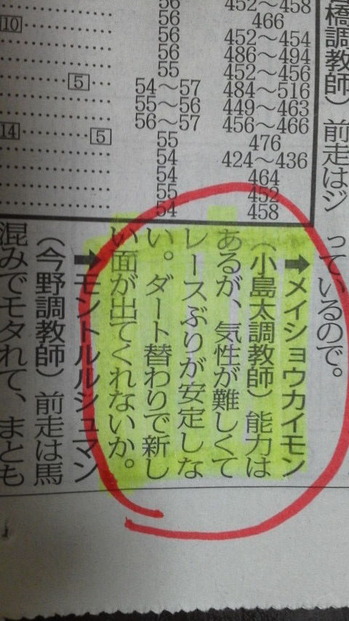 56 452〜458
56 466
10 56 452〜454
56 486〜494
55 452〜456
5 54〜57 484〜516
55〜56 449〜463
56〜57 456〜466
14 5 55 476
54 424〜436
54 464
55 452
54 458
橋調教師）前走はジ
っているので。
➡メイショウカイモン
（小島太調教師）能力は
あるが、気性が難しくて
レースぶりが安定しな
い。ダート替わりで新し
い面が出てくれないか。
➡モントルルシュマン
（今野調教師）前走は馬
混みでモタれて、まとも